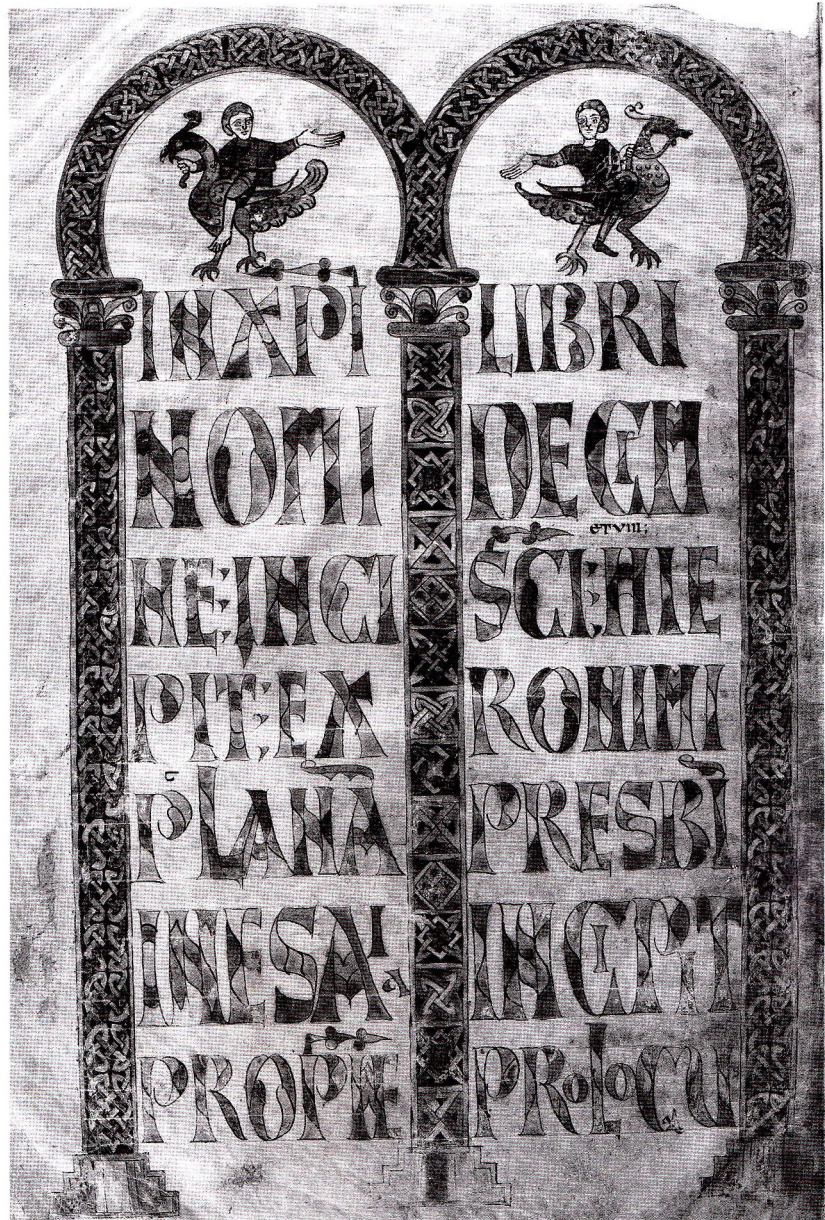 IN XPI
NOMI
NE; INCI
PIT; EX
PLANA̅
IN ESAIA
PROPHE
LIBRI
DECEM
et VIII;
SCI; HIE
RONIMI
PRESBI̅
INCIPIT
PROLOGU